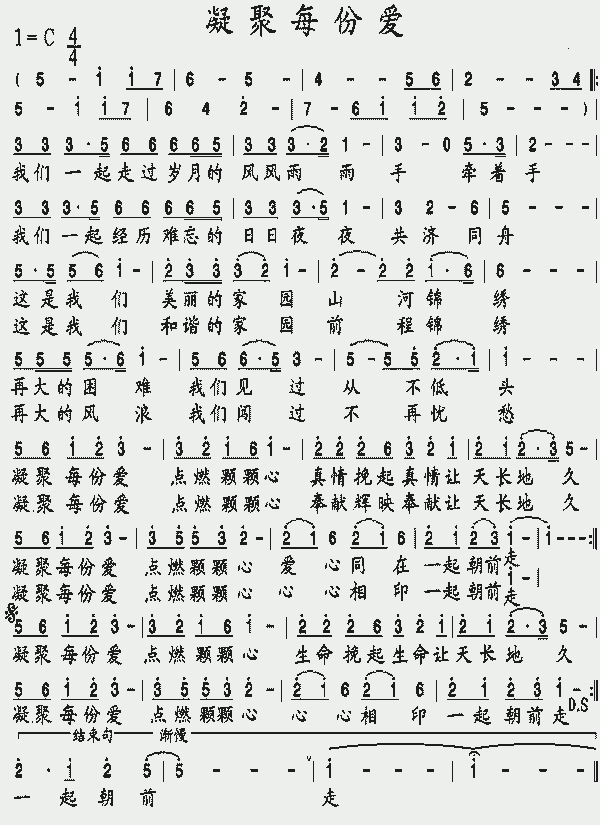 凝聚每份爱
1=C 4/4
( 5 - i i 7 | 6 - 5 - | 4 - 5 6 | 2 - - 3 4 ‖:
5 - i i 7 | 6 4 2 - | 7 - 6 i i 2 | 5 - - ) |
3 3 3 · 5 6 6 6 6 5 | 3 3 3 · 2 1 - | 3 - 0 5 · 3 | 2 - - - |
我们 一起走过岁月的 风风雨 雨 手 牵着手
3 3 3 · 5 6 6 6 6 6 | 3 3 3 · 5 1 - | 3 2 - 6 | 5 - - - |
我们一起经历难忘的 日日夜 夜 共济 同舟
5 · 5 5 6 i - | 2 3 3 3 2 i - | 2 - 2 2 i · 6 | 6 - - - |
这是我 们 美丽的家 园山 河锦 绣
这是我 们 和谐的家 园前 程锦 绣
5 5 5 5 · 6 i - | 5 6 6 · 5 3 - | 5 - 5 5 2 · i | i - - - |
再大的困 难 我们见 过 从 不低 头
再大的风 浪 我们闯 过 不 再忧 愁
5 6 i 2 3 - | 3 2 i 6 i - | 2 2 2 6 3 2 i | 2 i 2 · 3 5 - |
凝聚每份爱 点燃颗颗心 真情挽起真情让天长地 久
凝聚每份爱 点燃颗颗心 奉献辉映奉献让天长地 久
5 6 i 2 3 - | 3 5 5 3 2 - | 2 i 6 2 i 6 | 2 2 2 3 i - | i - - - :‖
凝聚每份爱 点燃颗颗心 爱 心同 在一起朝前走
凝聚每份爱 点燃颗颗心 心 心相 印一起朝前走
i - |
5 6 i 2 3 - | 3 2 i 6 i - | 2 2 2 6 3 2 i | 2 i 2 · 3 5 - |
凝聚每份爱 点燃颗颗心 生命挽起生命让天长地 久
5 6 i 2 3 - | 3 5 5 3 2 - | 2 i 6 2 i 6 | 2 2 2 3 i - :‖
凝聚每份爱 点燃颗颗心 心 心相 印 一起朝前走
D.S
结束句 渐慢
2 · i 2 5 | 5 - - - | i - - - | i - - - ‖
一 起朝 前 走